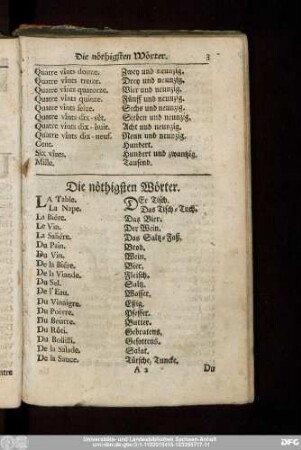 Die nöthigsten Wörter. 3
Quatre vints douze. Zwey und neunzig.
Quatre vints treize. Drey und neunzig.
Quatre vints quatorze. Vier und neunzig.
Quatre vints quinze. Fünff und neunzig.
Quatre vints seize. Sechs und neunzig.
Quatre vints dix-sêt. Sieben und neunzig.
Quatre vints dix-huit. Acht und neunzig.
Quatre vints dix-neuf. Neun und neunzig.
Cent. Hundert.
Six vints. Hundert und zwantzig.
Mille. Tausend.
Die nöthigsten Wörter.
LA Table. DEr Tisch.
La Nape. Das Tisch-Tuch.
La Biére. Das Bier.
Le Vin. Der Wein.
La Saliére. Das Saltz-Faß.
Du Pain. Brod.
Du Vin. Wein.
De la Biére. Bier.
De la Viande. Fleisch.
Du Sel. Saltz.
De l'Eau. Wasser.
Du Vinaigre. Eßig.
Du Poivre. Pfeffer.
Du Beurre. Butter.
Du Rôti. Gebratens.
Du Boülli. Gesottens.
De la Salade. Salat.
De la Sauce. Türsche, Tuncke.
A 2 Du
Universitäts- und Landesbibliothek Sachsen-Anhalt
DFG